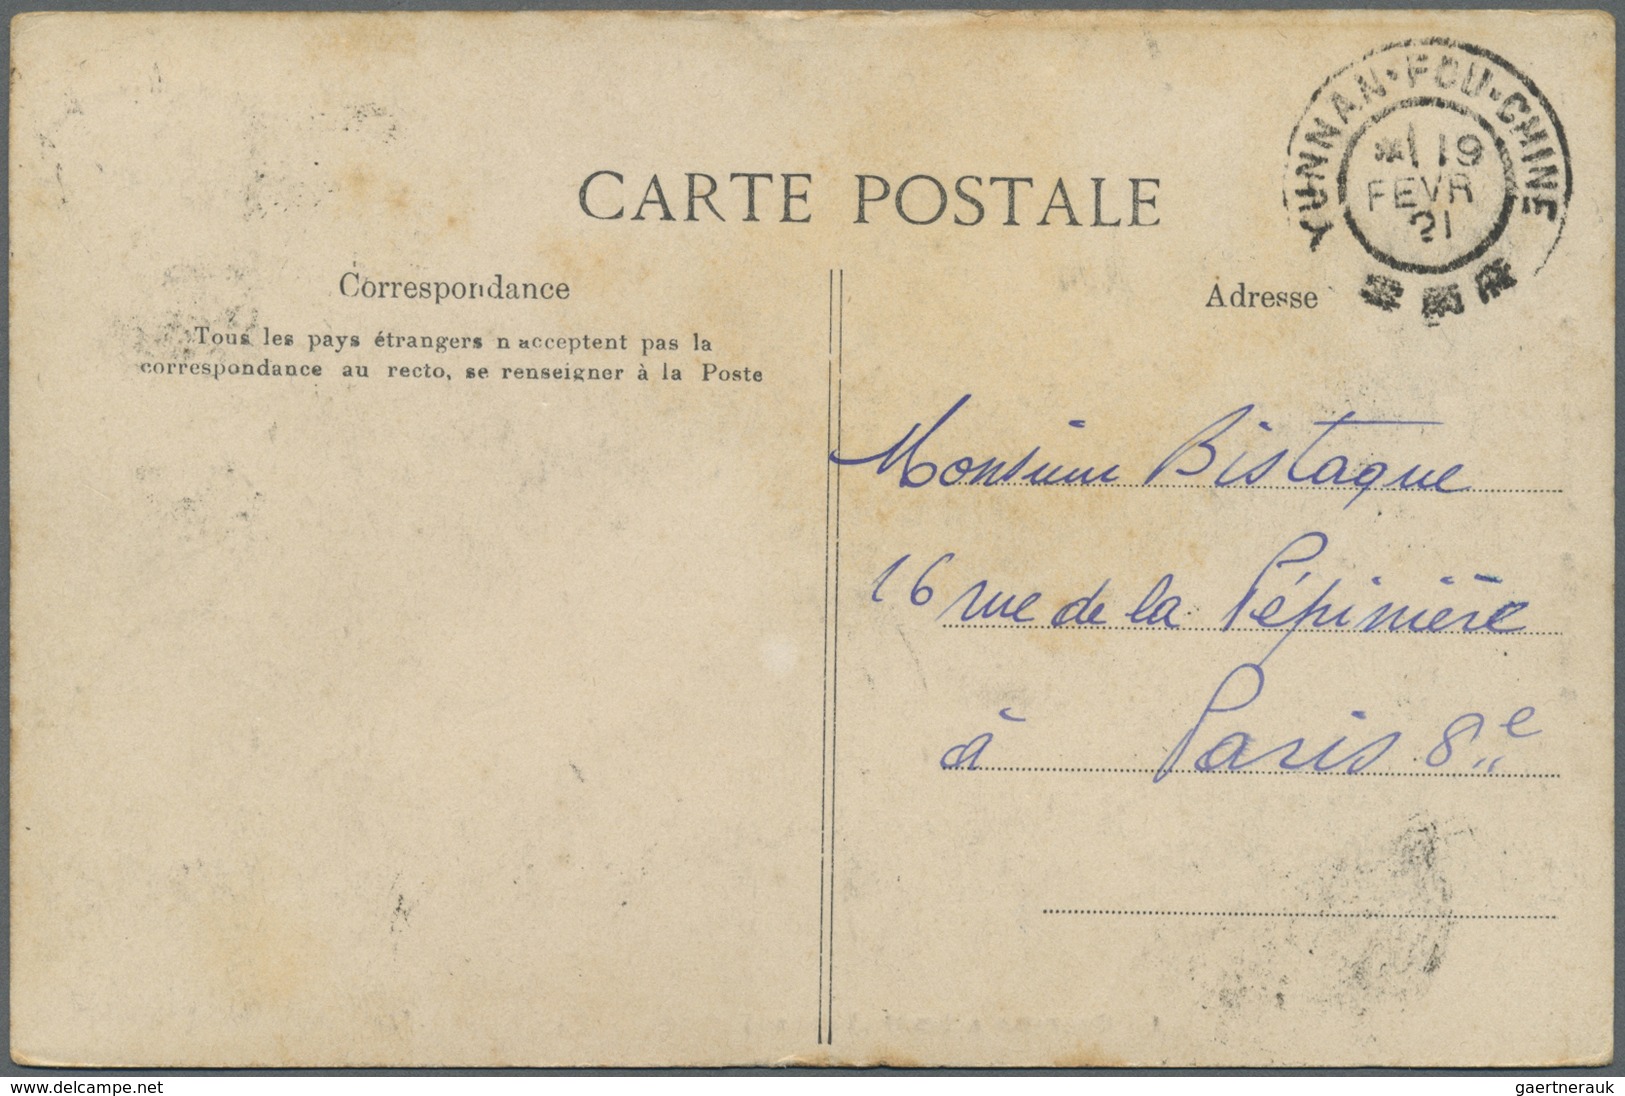 YUNNAN-FOU-CHINE
19
FEVR
21
CARTE POSTALE
Correspondance
Adresse
Tous les pays étrangers n acceptent pas la
correspondance au recto, se renseigner à la Poste
Monsieur Bistaque
16 rue de la Pépinière
à Paris 8e
www.delcampe.net
gaertnerauk